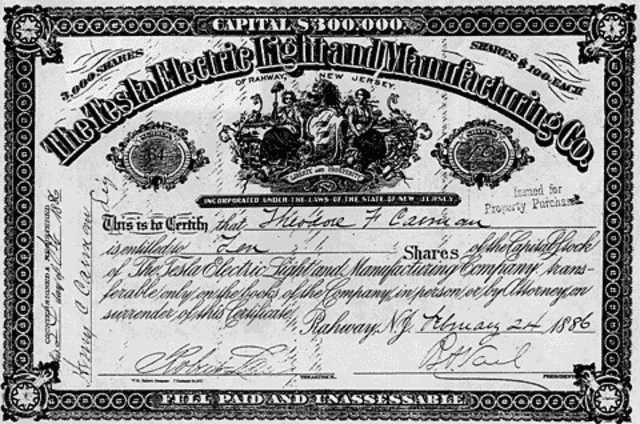 CAPITAL $300.000.
3,000 SHARES
SHARES $100. EACH
The Tesla Electric Light and Manufacturing Co.
OF RAHWAY, NEW JERSEY.
LIBERTY AND PROSPERITY
INCORPORATED UNDER THE LAWS OF THE STATE OF NEW JERSEY
Issued for
Property Purchase
This is to Certify that Theodore F
is entitled to Ten Shares of the Capital Stock
of The Tesla Electric Light and Manufacturing Company, trans-
ferable only on the books of the Company in person or by Attorney on
surrender of this Certificate.
Rahway, N.J. February 24 1886
PRESIDENT
FULL PAID AND UNASSESSABLE
COUNTERSIGNED & REGISTERED
day of 1886
Henry C